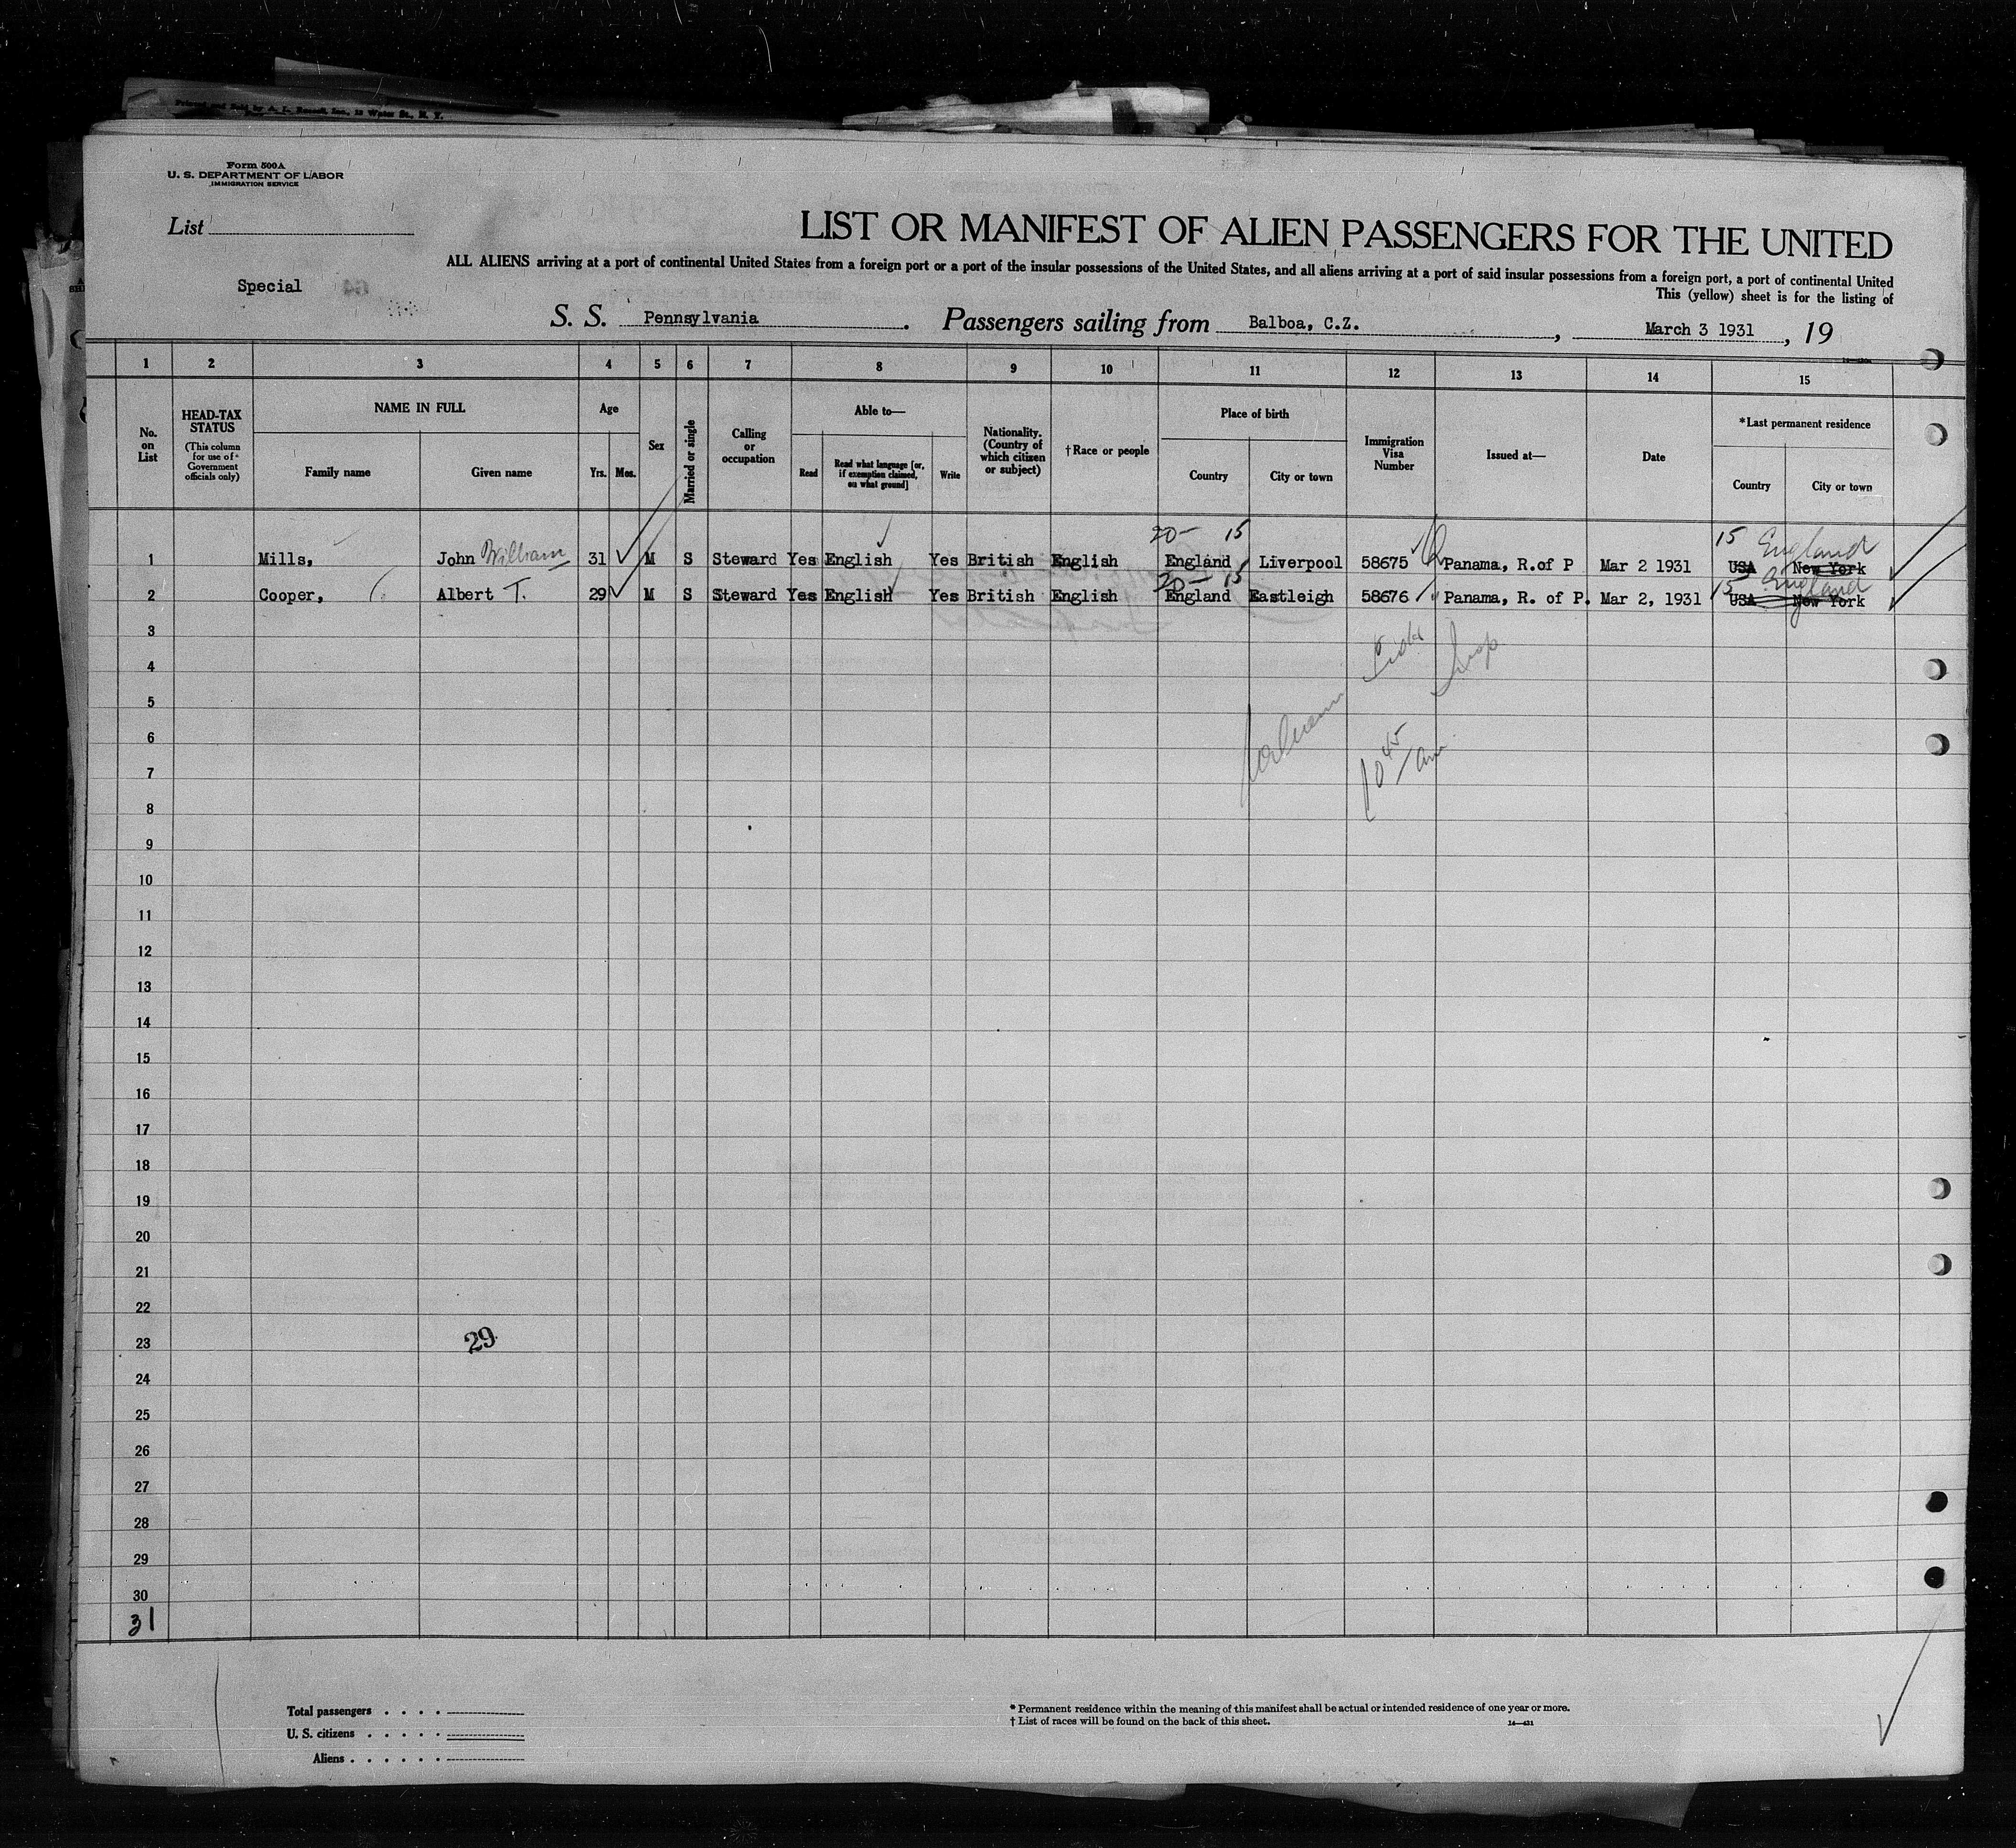 Printed and Sold by A. L. Russell, Inc., 12 Water St., N. Y.
Form 500A
U. S. DEPARTMENT OF LABOR
IMMIGRATION SERVICE
List
LIST OR MANIFEST OF ALIEN PASSENGERS FOR THE UNITED
ALL ALIENS arriving at a port of continental United States from a foreign port or a port of the insular possessions of the United States, and all aliens arriving at a port of said insular possessions from a foreign port, a port of continental United
Special
This (yellow) sheet is for the listing of
S. S. Pennsylvania. Passengers sailing from Balboa, C.Z., March 3 1931, 19
1 2 3 4 5 6 7 8 9 10 11 12 13 14 15
No. on List
HEAD-TAX STATUS (This column for use of Government officials only)
NAME IN FULL
Family name Given name
Age
Yrs. Mos.
Sex
Married or single
Calling or occupation
Able to—
Read Read what language [or, if exemption claimed, on what ground] Write
Nationality. (Country of which citizen or subject)
†Race or people
Place of birth
Country City or town
Immigration Visa Number
Issued at—
Date
*Last permanent residence
Country City or town
20— 15 15 England
1 Mills, John William 31 M S Steward Yes English Yes British English England Liverpool 58675 Panama, R.of P Mar 2 1931 USA New York
20— 15 15 England
2 Cooper, Albert T. 29 M S Steward Yes English Yes British English England Eastleigh 58676 Panama, R. of P. Mar 2, 1931 USA New York
3
4
5
6
10 45/am
7
8
9
10
11
12
13
14
15
16
17
18
19
20
21
22
23 29
24
25
26
27
28
29
30
31
Total passengers . . . .
U. S. citizens . . . . .
Aliens . . . . . .
* Permanent residence within the meaning of this manifest shall be actual or intended residence of one year or more.
† List of races will be found on the back of this sheet.
14—431